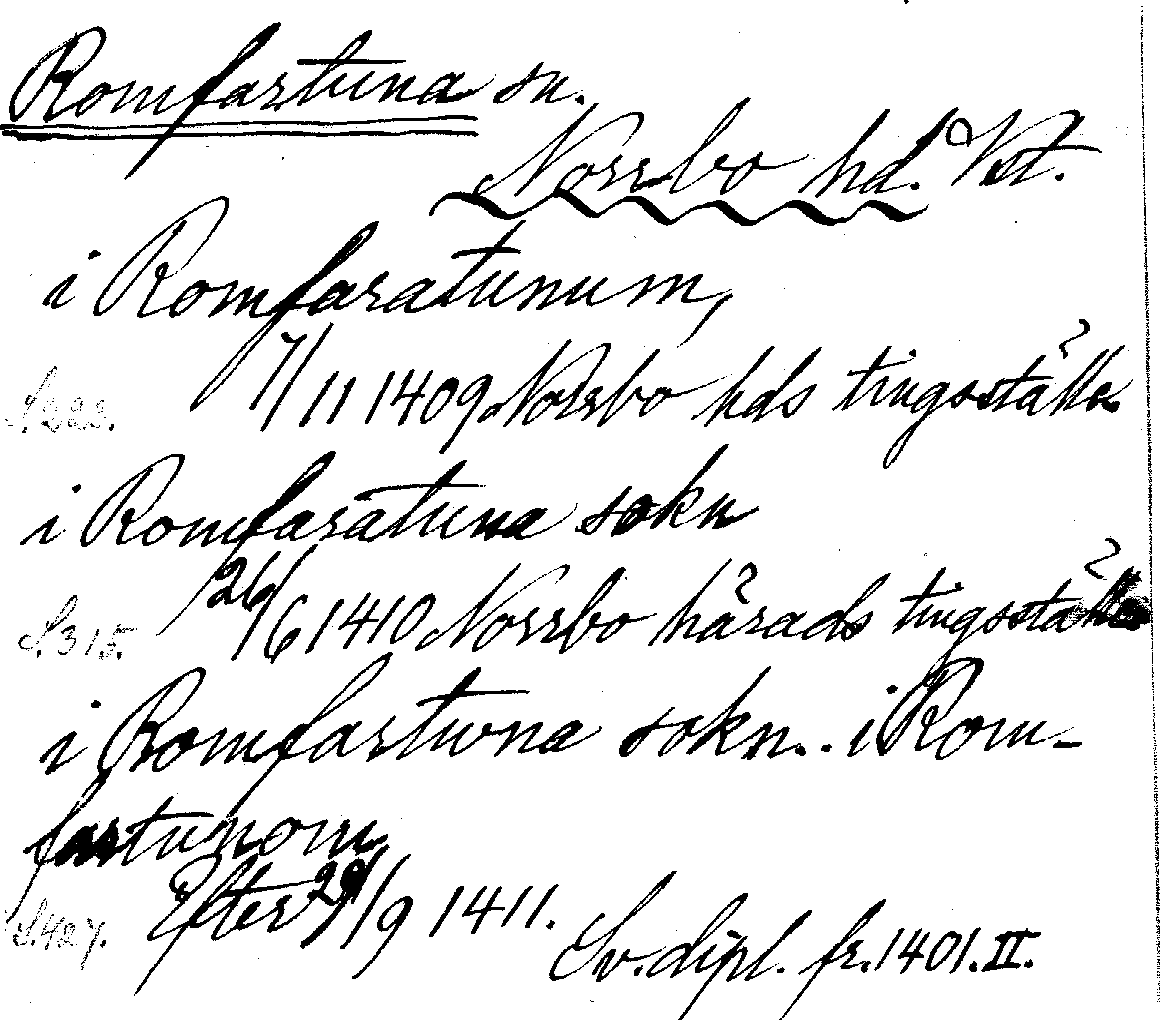 Romfartuna sn.
Norrbo hd. Vst.
i Romfaratunum,
S. 223. 7/11 1409 Norrbo hds tingsställe
i Romfaratuna sokn
S. 315. 26/6 1410 Norrbo härads tingsställe
i Romfartwna sokn.. i Rom-
fartunom
S. 427. Efter 29/9 1411.
Sv. dipl. fr. 1401. II.